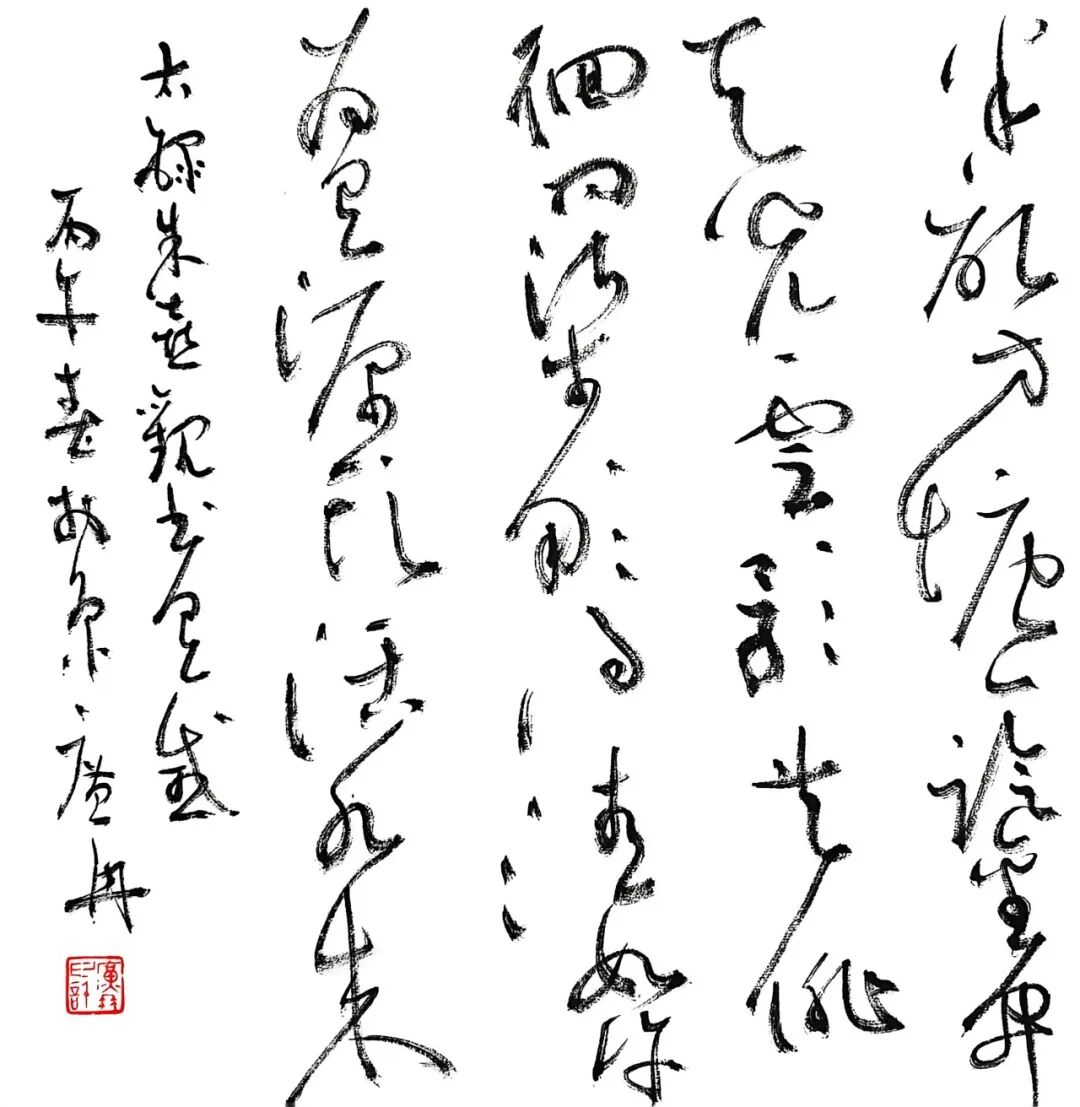 半畝方塘一鑑開
天光雲影共徘
徊問渠那得清如許
為有源頭活水來
右錄朱熹觀書有感
丙午春於京